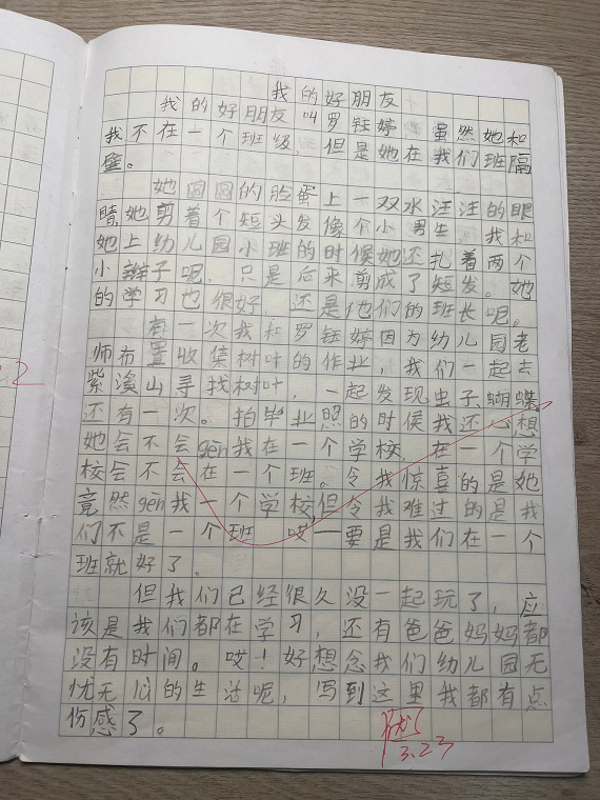 我的好朋友
我的好朋友叫罗钰婷 虽然她和
我不在一个班级,但是她在我们班隔
壁。
她圆圆的脸蛋上一双水汪汪的眼
睛她剪着个短头发像个小男生 我和
她上幼儿园小班的时候她还扎着两个
小辫子呢,只是后来剪成了短发。她
的学习也很好 还是他们的班长呢。
有一次我和罗钰婷因为幼儿园老
师布置收集树叶的作业,我们一起去
紫溪山寻找树叶,一起发现虫子蝴蝶。
还有一次。拍毕业照的时候我还心想
她会不会gēn我在一个学校,在一个学
校会不会在一个班。令我惊喜的是她
竟然gēn我一个学校但令我难过的是我
们不是一个班 哎一要是我们在一个
班就好了。
但我们已经很久没一起玩了,应
该是我们都在学习,还有爸爸妈妈都
没有时间。哎!好想念我们幼儿园无
忧无心的生活呢,写到这里我都有点
伤感了。
优
3.23
2